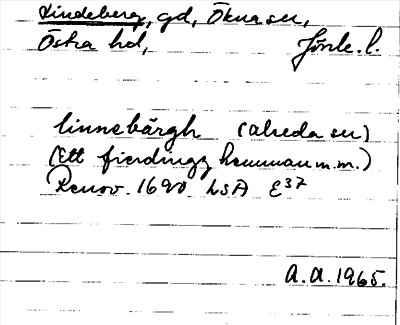 Lindeberg, gd, Ökna sn,
Östra hd, Jönk. l.
linnebärgh (Alseda sn)
(Ett fierdingz hemman m.m.)
Renov. 1690 LSA E37
A.A. 1965.